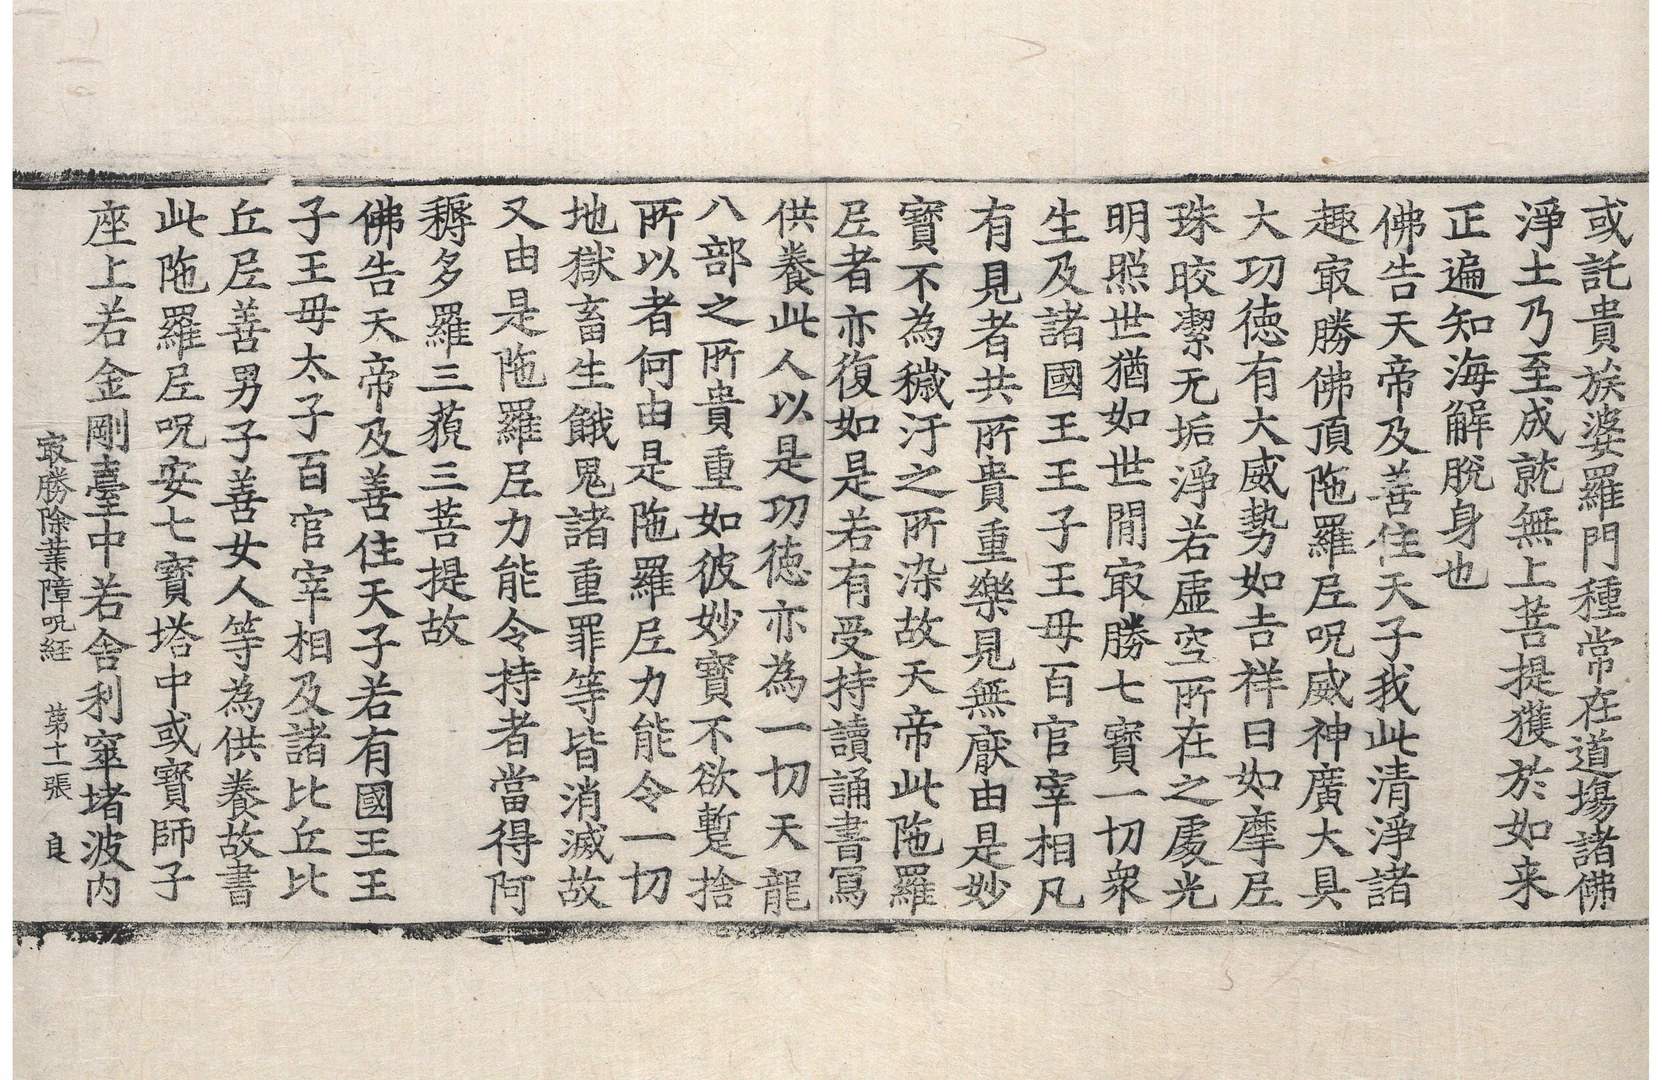 或託貴族婆羅門種常在道場諸佛
淨土乃至成就無上菩提獲於如来
正遍知海解脫身也
佛告天帝及善住天子我此清淨諸
趣㝡勝佛頂陁羅尼呪威神廣大具
大功德有大威勢如吉祥日如摩尼
珠晈潔无垢淨若虛空所在之處光
明照世猶如世間㝡勝七寶一切衆
生及諸國王王子王毋百官宰相凡
有見者共所貴重樂見無厭由是妙
寶不為穢汙之所染故天帝此陁羅
尼者亦復如是若有受持讀誦書寫
供養此人以是功德亦為一切天龍
八部之所貴重如彼妙寶不欲蹔捨
所以者何由是陁羅尼力能令一切
地獄畜生餓鬼諸重罪等皆消滅故
又由是陁羅尼力能令持者當得阿
耨多羅三藐三菩提故
佛告天帝及善住天子若有國王王
子王毋太子百官宰相及諸比丘比
丘尼善男子善女人等為供養故書
此陁羅尼呪安七寶塔中或寶師子
座上若金剛臺中若舍利窣堵波内
㝡勝除業障呪經 苐十一張 良